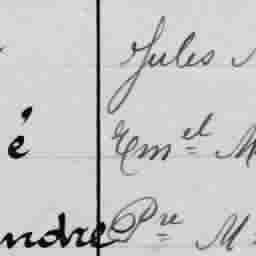 Jules
é Em^el M
ndre P^re M